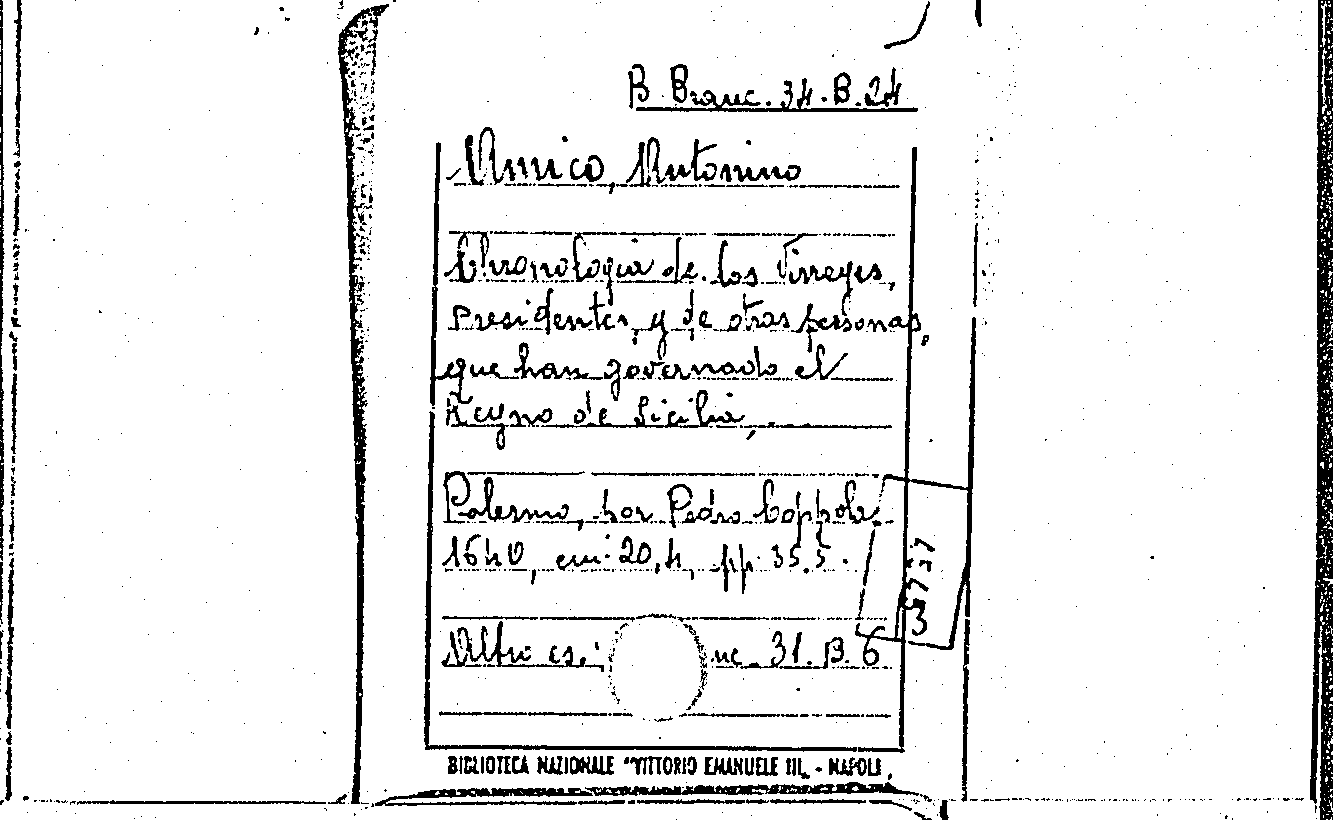 B. Branc. 34. B. 24
Amico, Antonino
Chronologia de los Virreyes,
Presidentes, y de otras personas,
que han governado el
Reyno de Sicilia, ...
Palermo, por Pedro Coppola.
1640, cm. 20,4, pp. 35.
Altro es.: nc. 31. B. 6
BIBLIOTECA NAZIONALE "VITTORIO EMANUELE III" - NAPOLI